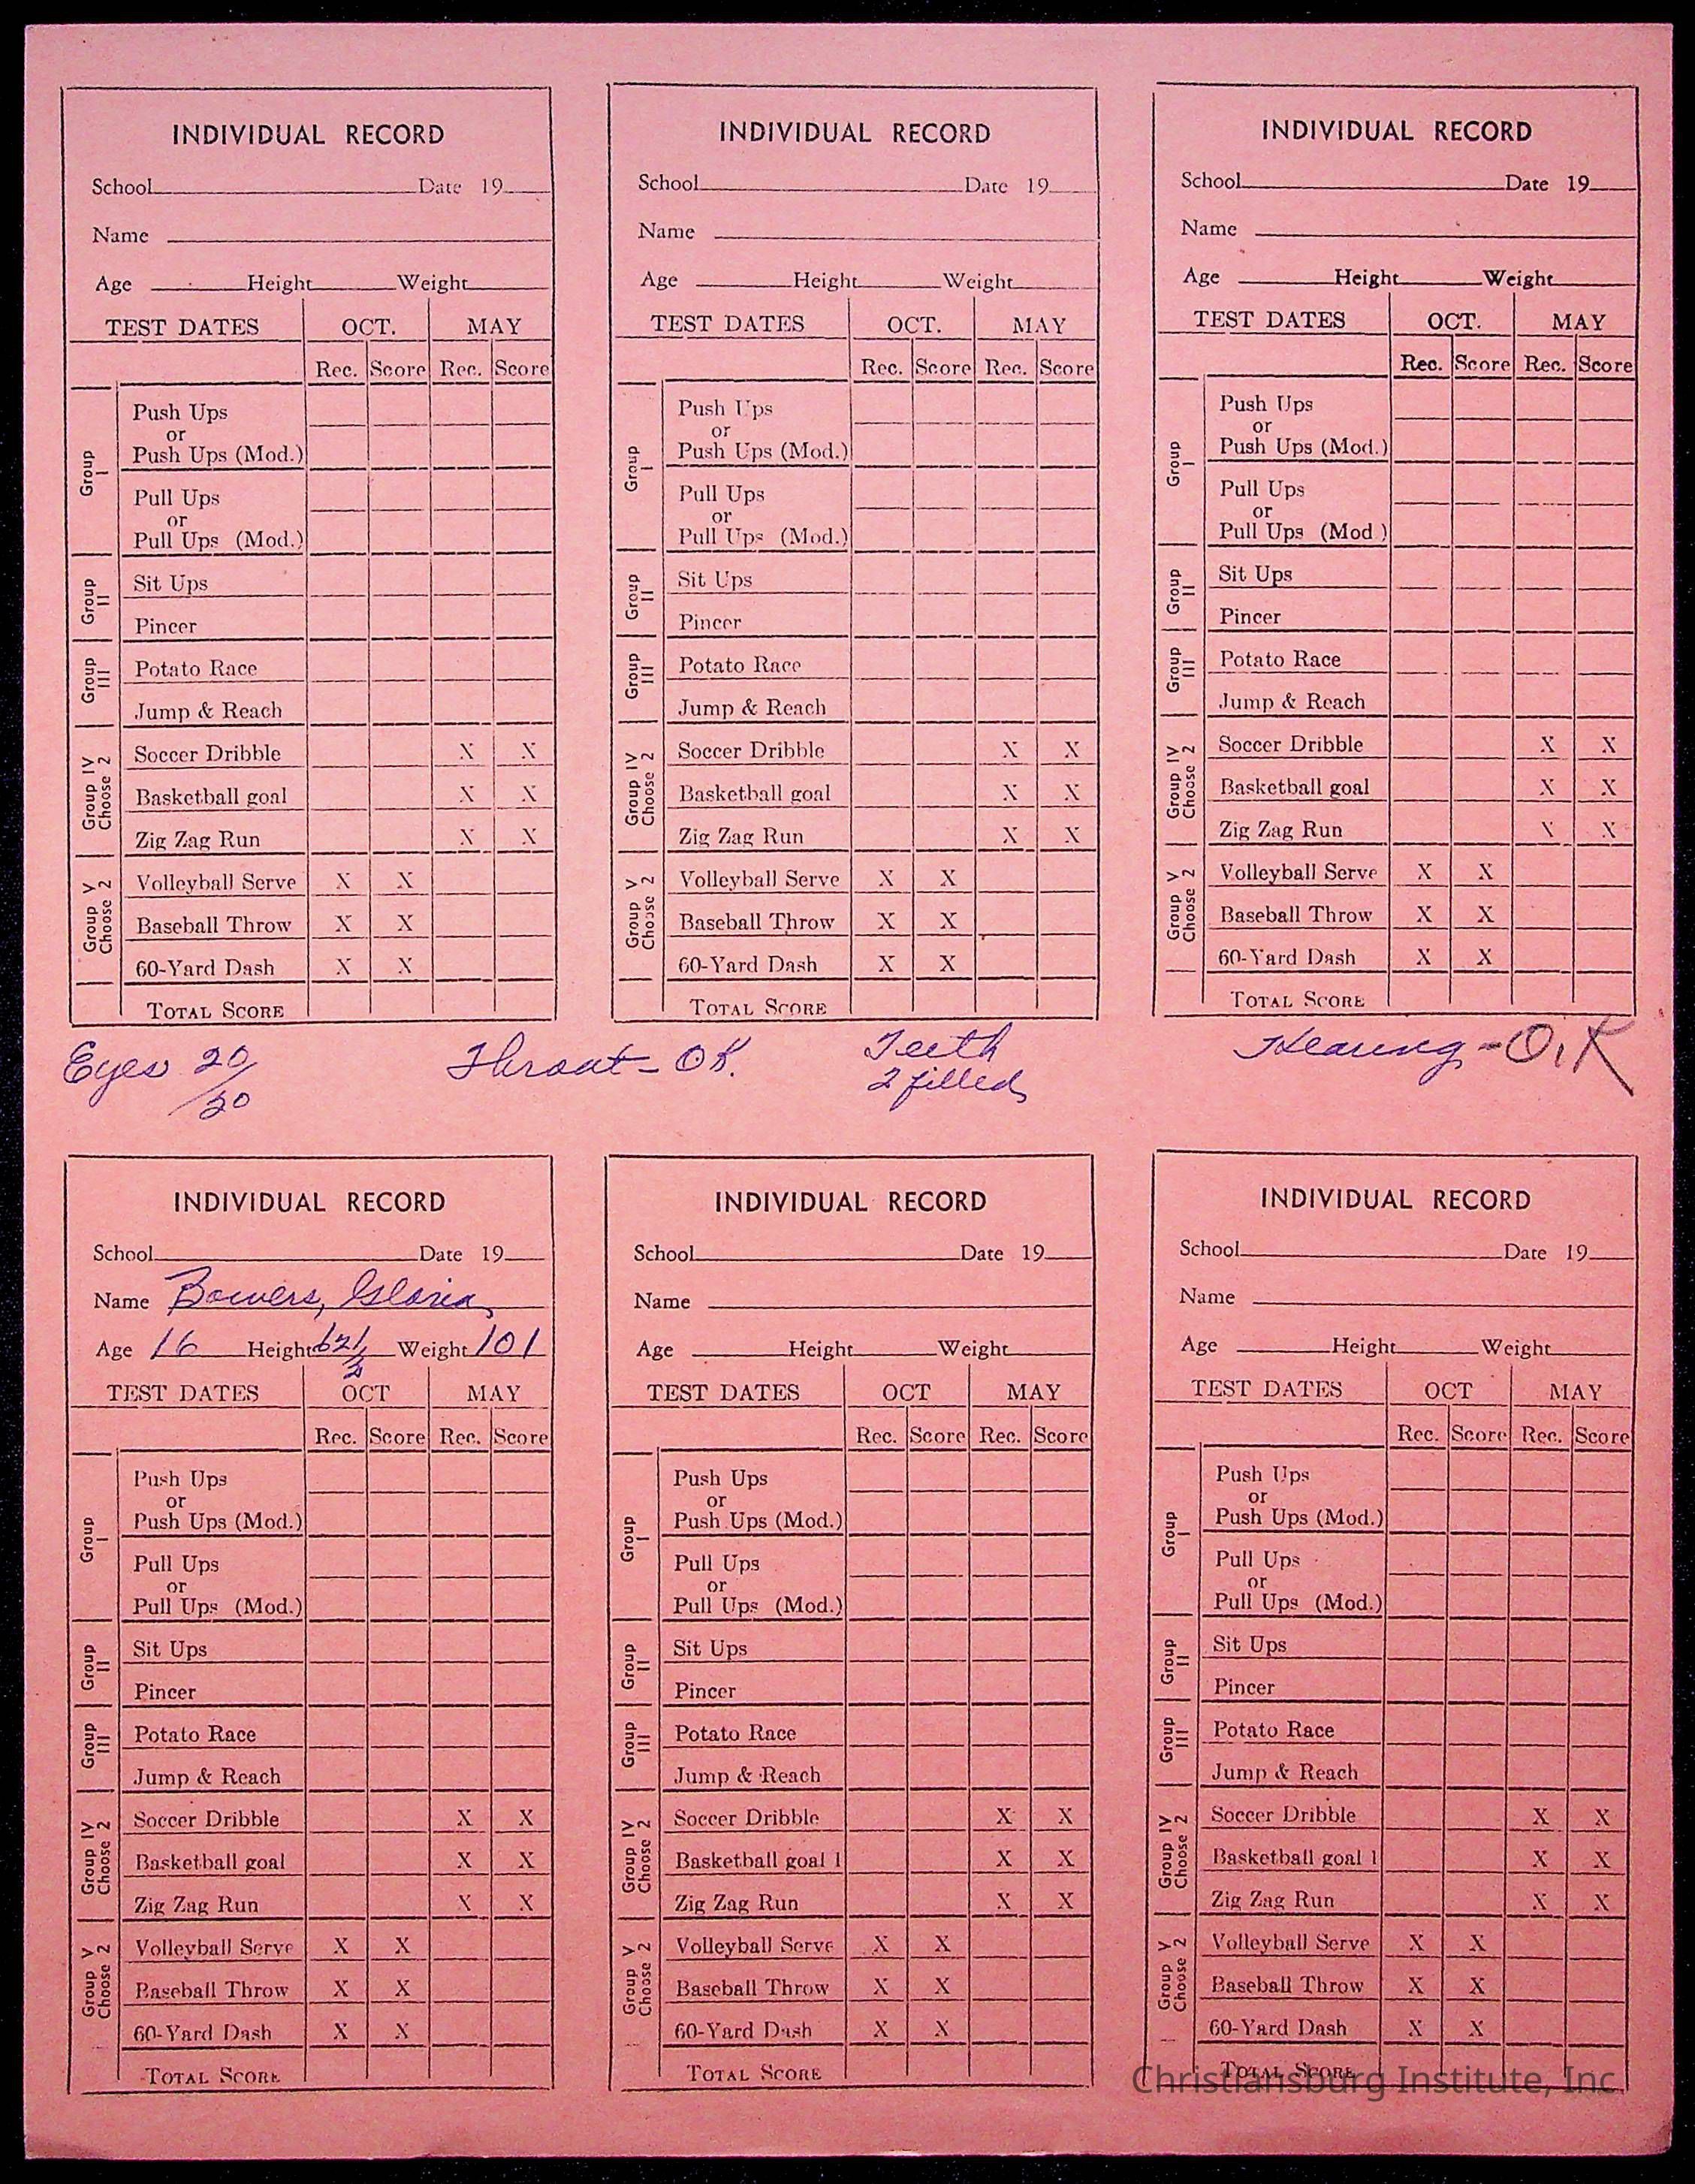 INDIVIDUAL RECORD
School Date 19
Name
Age Height Weight
TEST DATES OCT. MAY
Rec. Score Rec. Score
Group I
Push Ups
or
Push Ups (Mod.)
Pull Ups
or
Pull Ups (Mod.)
Group II
Sit Ups
Pincer
Group III
Potato Race
Jump & Reach
Group IV Choose 2
Soccer Dribble X X
Basketball goal X X
Zig Zag Run X X
Group V Choose 2
Volleyball Serve X X
Baseball Throw X X
60-Yard Dash X X
TOTAL SCORE
INDIVIDUAL RECORD
School Date 19
Name
Age Height Weight
TEST DATES OCT. MAY
Rec. Score Rec. Score
Group I
Push Ups
or
Push Ups (Mod.)
Pull Ups
or
Pull Ups (Mod.)
Group II
Sit Ups
Pincer
Group III
Potato Race
Jump & Reach
Group IV Choose 2
Soccer Dribble X X
Basketball goal X X
Zig Zag Run X X
Group V Choose 2
Volleyball Serve X X
Baseball Throw X X
60-Yard Dash X X
TOTAL SCORE
INDIVIDUAL RECORD
School Date 19
Name
Age Height Weight
TEST DATES OCT. MAY
Rec. Score Rec. Score
Group I
Push Ups
or
Push Ups (Mod.)
Pull Ups
or
Pull Ups (Mod )
Group II
Sit Ups
Pincer
Group III
Potato Race
Jump & Reach
Group IV Choose 2
Soccer Dribble X X
Basketball goal X X
Zig Zag Run X X
Group V Choose 2
Volleyball Serve X X
Baseball Throw X X
60-Yard Dash X X
TOTAL SCORE
Eyes 20/20
Throat - OK.
Teeth
2 filled
Hearing - O.K
INDIVIDUAL RECORD
School Date 19
Name Bowers, Gloria
Age 16 Height 62 1/2 Weight 101
TEST DATES OCT MAY
Rec. Score Rec. Score
Group I
Push Ups
or
Push Ups (Mod.)
Pull Ups
or
Pull Ups (Mod.)
Group II
Sit Ups
Pincer
Group III
Potato Race
Jump & Reach
Group IV Choose 2
Soccer Dribble X X
Basketball goal X X
Zig Zag Run X X
Group V Choose 2
Volleyball Serve X X
Baseball Throw X X
60-Yard Dash X X
TOTAL SCORE
INDIVIDUAL RECORD
School Date 19
Name
Age Height Weight
TEST DATES OCT MAY
Rec. Score Rec. Score
Group I
Push Ups
or
Push Ups (Mod.)
Pull Ups
or
Pull Ups (Mod.)
Group II
Sit Ups
Pincer
Group III
Potato Race
Jump & Reach
Group IV Choose 2
Soccer Dribble X X
Basketball goal 1 X X
Zig Zag Run X X
Group V Choose 2
Volleyball Serve X X
Baseball Throw X X
60-Yard Dash X X
TOTAL SCORE
INDIVIDUAL RECORD
School Date 19
Name
Age Height Weight
TEST DATES OCT MAY
Rec. Score Rec. Score
Group I
Push Ups
or
Push Ups (Mod.)
Pull Ups
or
Pull Ups (Mod.)
Group II
Sit Ups
Pincer
Group III
Potato Race
Jump & Reach
Group IV Choose 2
Soccer Dribble X X
Basketball goal 1 X X
Zig Zag Run X X
Group V Choose 2
Volleyball Serve X X
Baseball Throw X X
60-Yard Dash X X
TOTAL SCORE
Christiansburg Institute, Inc